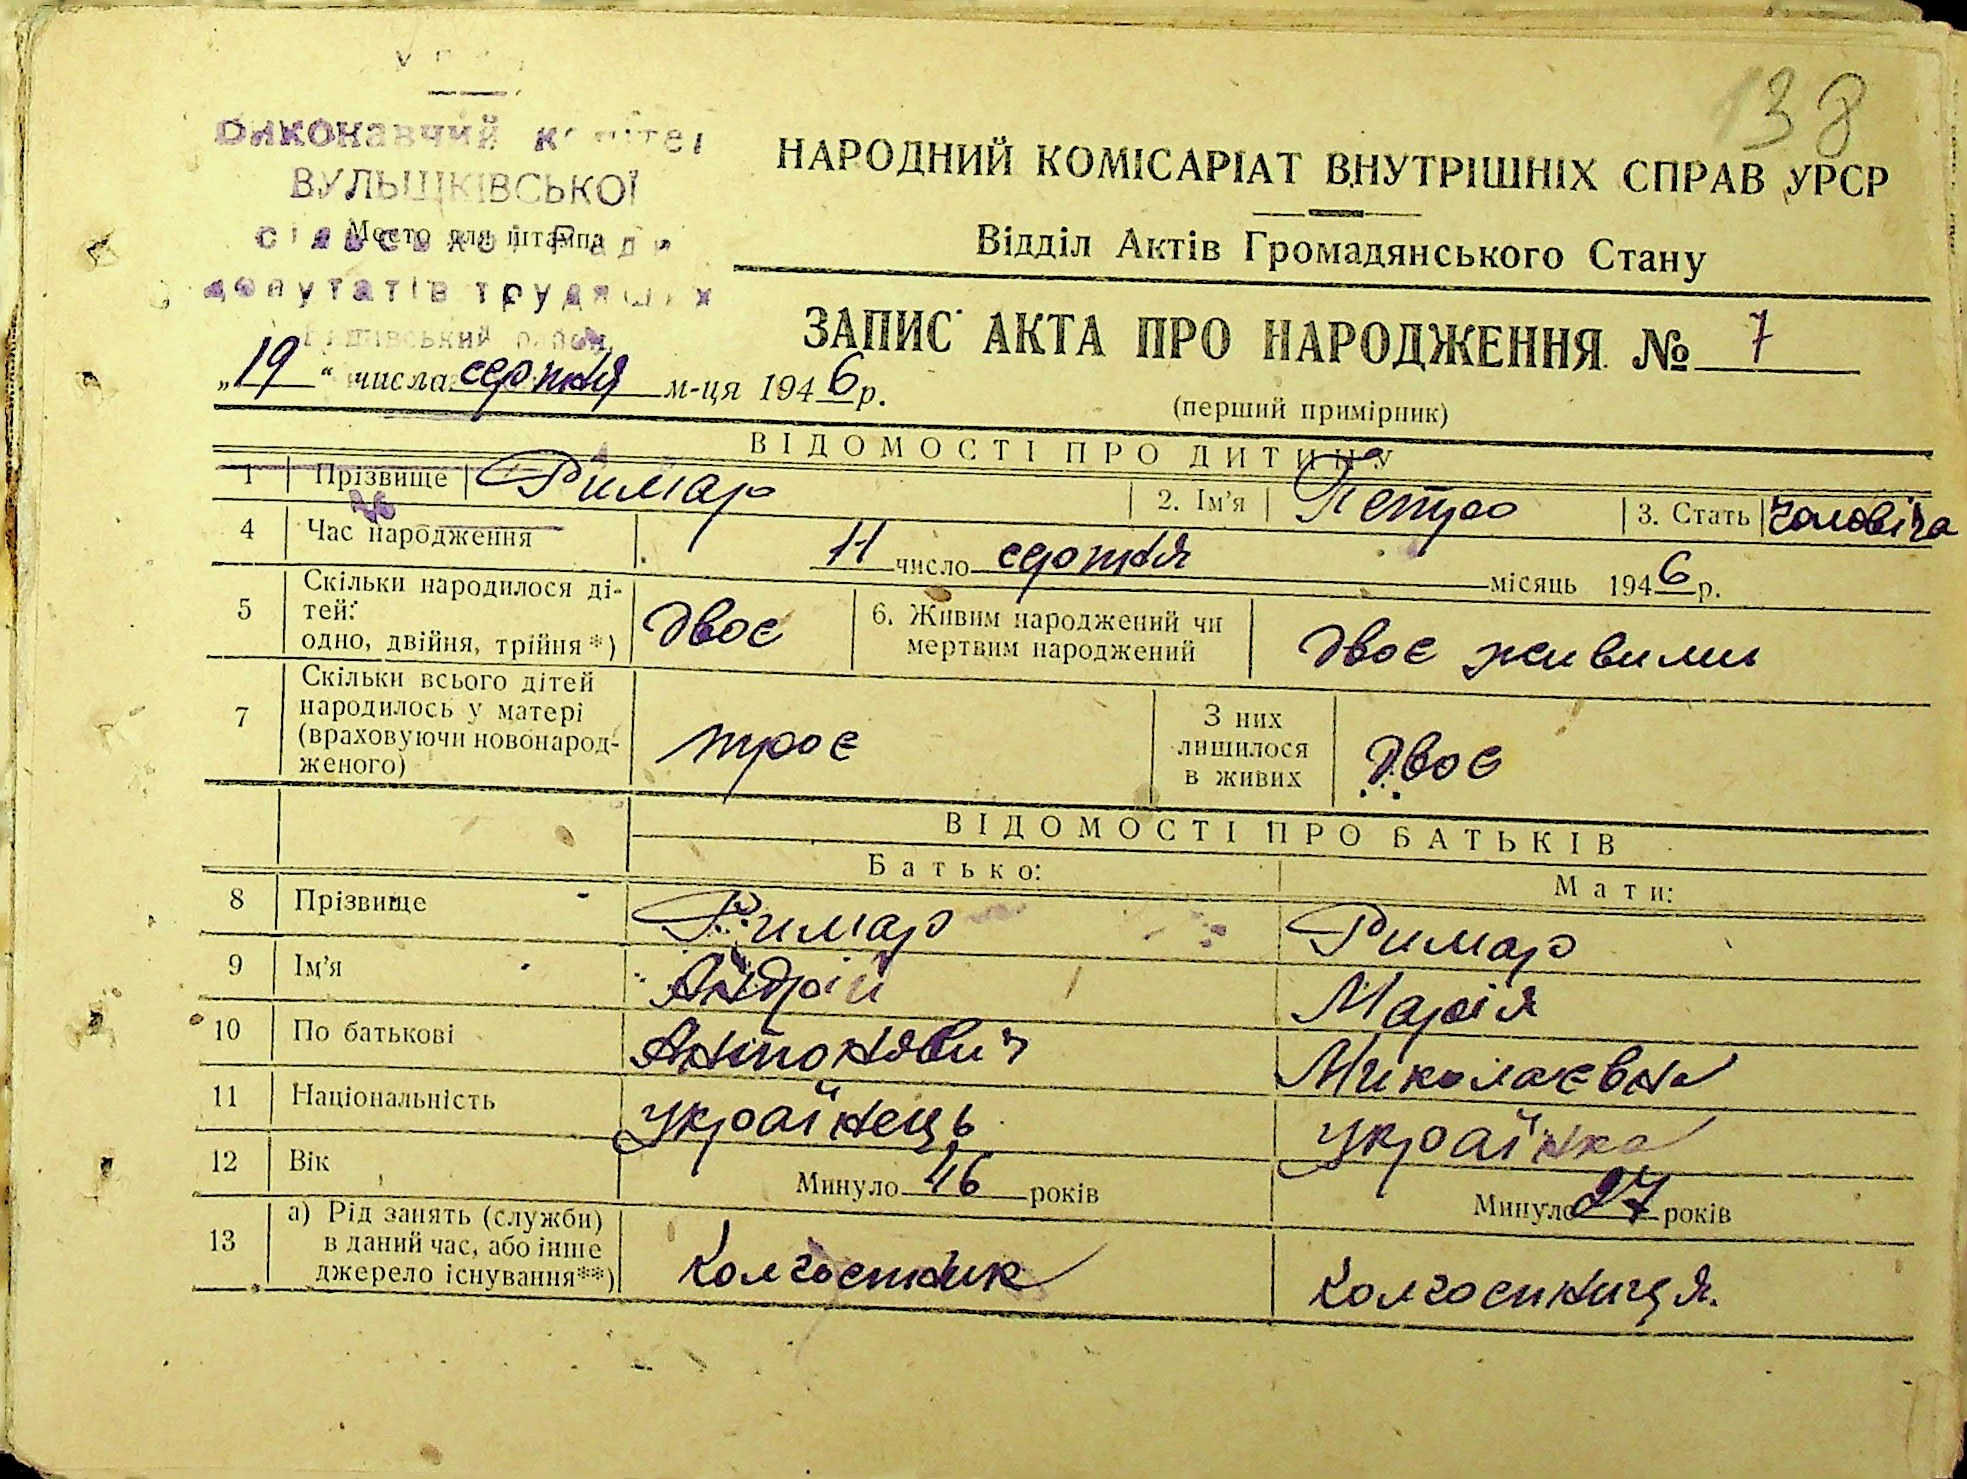 138
Виконавчий комітет
ВУЛЬШКІВСЬКОЇ
сільської Ради
Место для штампа
депутатів трудящих
НАРОДНИЙ КОМІСАРІАТ ВНУТРІШНІХ СПРАВ УРСР
Відділ Актів Громадянського Стану
ЗАПИС АКТА ПРО НАРОДЖЕННЯ № 7
„19“ числа серпня м-ця 1946 р.
(перший примірник)
ВІДОМОСТІ ПРО ДИТИНУ
1 Прізвище Римар 2. Ім'я Петро 3. Стать чоловіча
4 Час народження 11 число серпня місяць 1946 р.
5 Скільки народилося ді-
тей:
одно, двійня, трійня*) двоє 6. Живим народжений чи
мертвим народжений двоє живими
7 Скільки всього дітей
народилось у матері
(враховуючи новонарод-
женого) троє З них
лишилося
в живих двоє
ВІДОМОСТІ ПРО БАТЬКІВ
Батько: Мати:
8 Прізвище Римар Римар
9 Ім'я Андрій Марія
10 По батькові Антонович Миколаєвна
11 Національність Українець Українка
12 Вік Минуло 46 років Минуло 27 років
13 а) Рід занять (служби)
в даний час, або інше
джерело існування**) Колгоспник Колгоспниця.